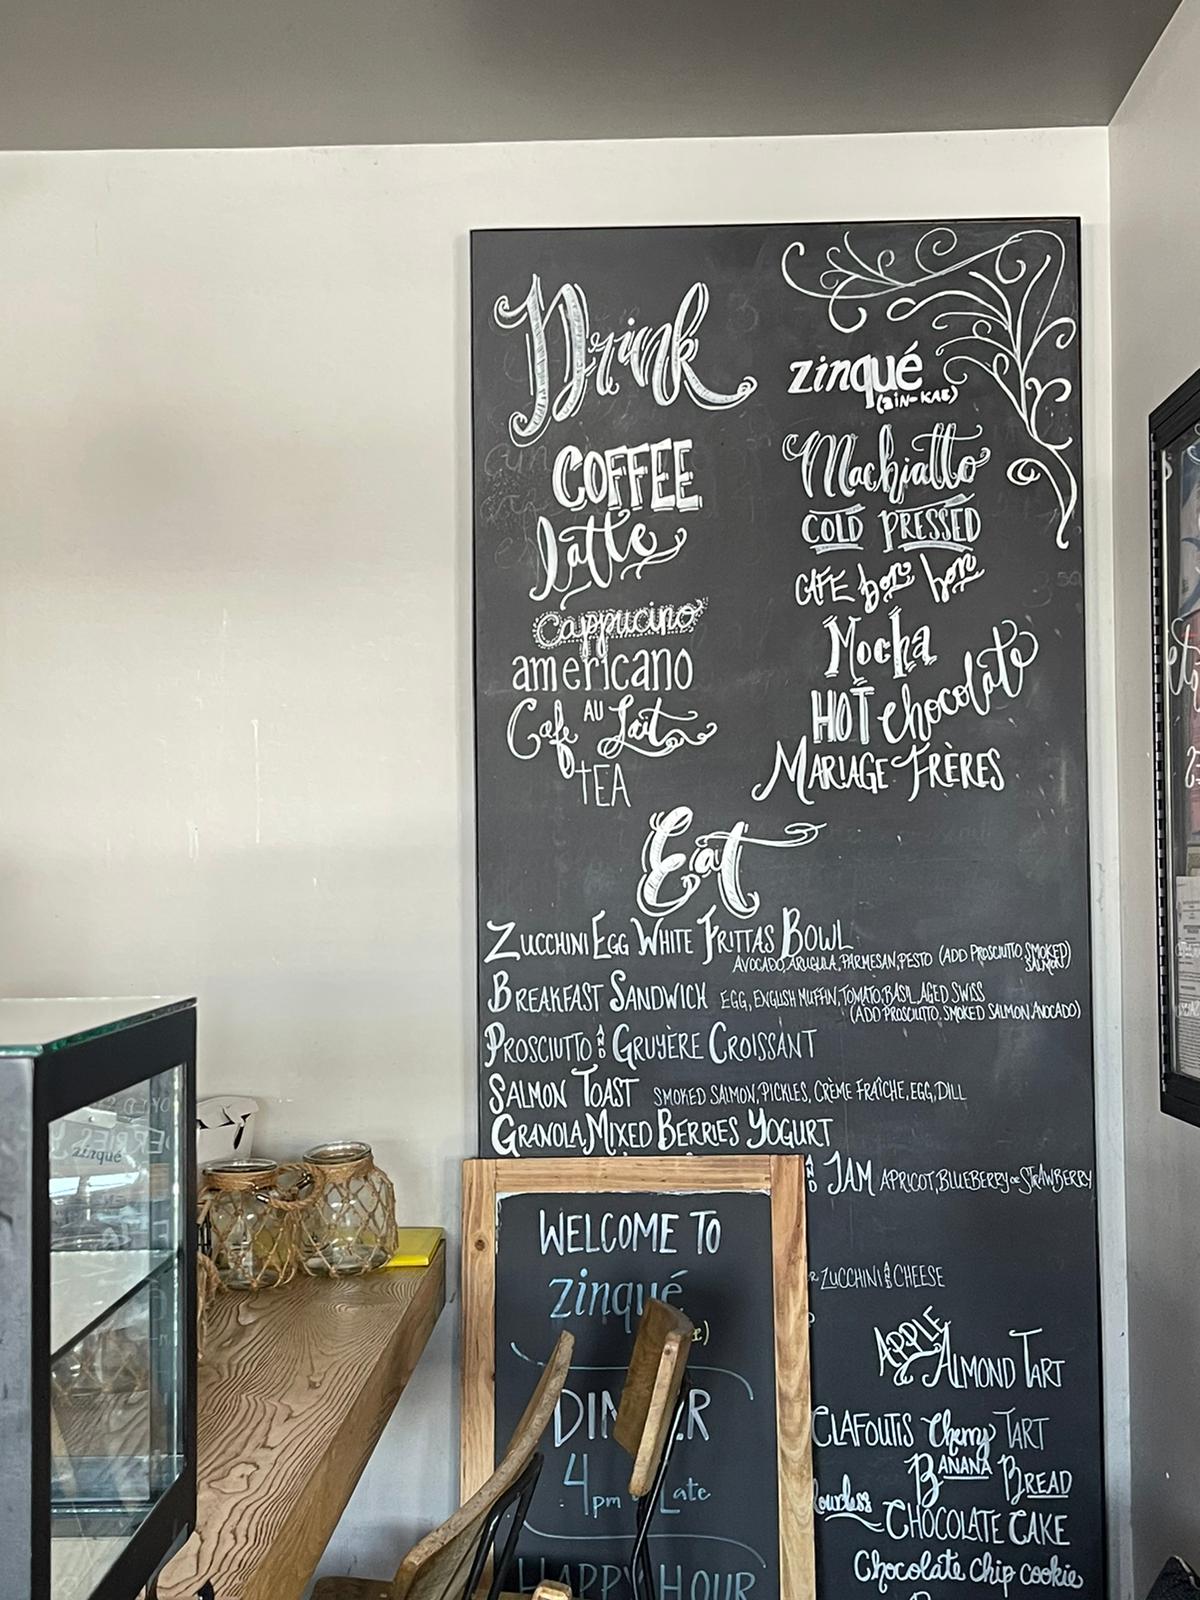 Drink
COFFEE
latte
Cappucino
americano
Cafe AU Lait
TEA
zinqué
(ZiN-KAE)
Machiatto
COLD PRESSED
CAFE bon bon
Mocha
HOT chocolate
MARIAGE FRÈRES
Eat
ZUCCHINI EGG WHITE FRITTAS BOWL
AVOCADO, ARUGULA, PARMESAN, PESTO (ADD PROSCIUTTO, SMOKED SALMON)
BREAKFAST SANDWICH EGG, ENGLISH MUFFIN, TOMATO, BASIL, AGED SWISS
(ADD PROSCIUTTO, SMOKED SALMON, AVOCADO)
PROSCIUTTO AND GRUYÈRE CROISSANT
SALMON TOAST SMOKED SALMON, PICKLES, CRÈME FRAÎCHE, EGG, DILL
GRANOLA, MIXED BERRIES YOGURT
JAM APRICOT, BLUEBERRY or STRAWBERRY
ZUCCHINI AND CHEESE
APPLE ALMOND TART
CLAFOUTIS Cherry TART
BANANA BREAD
CHOCOLATE CAKE
Chocolate Chip cookie
WELCOME TO
zinqué
4pm Late
HAPPY HOUR
zinqué